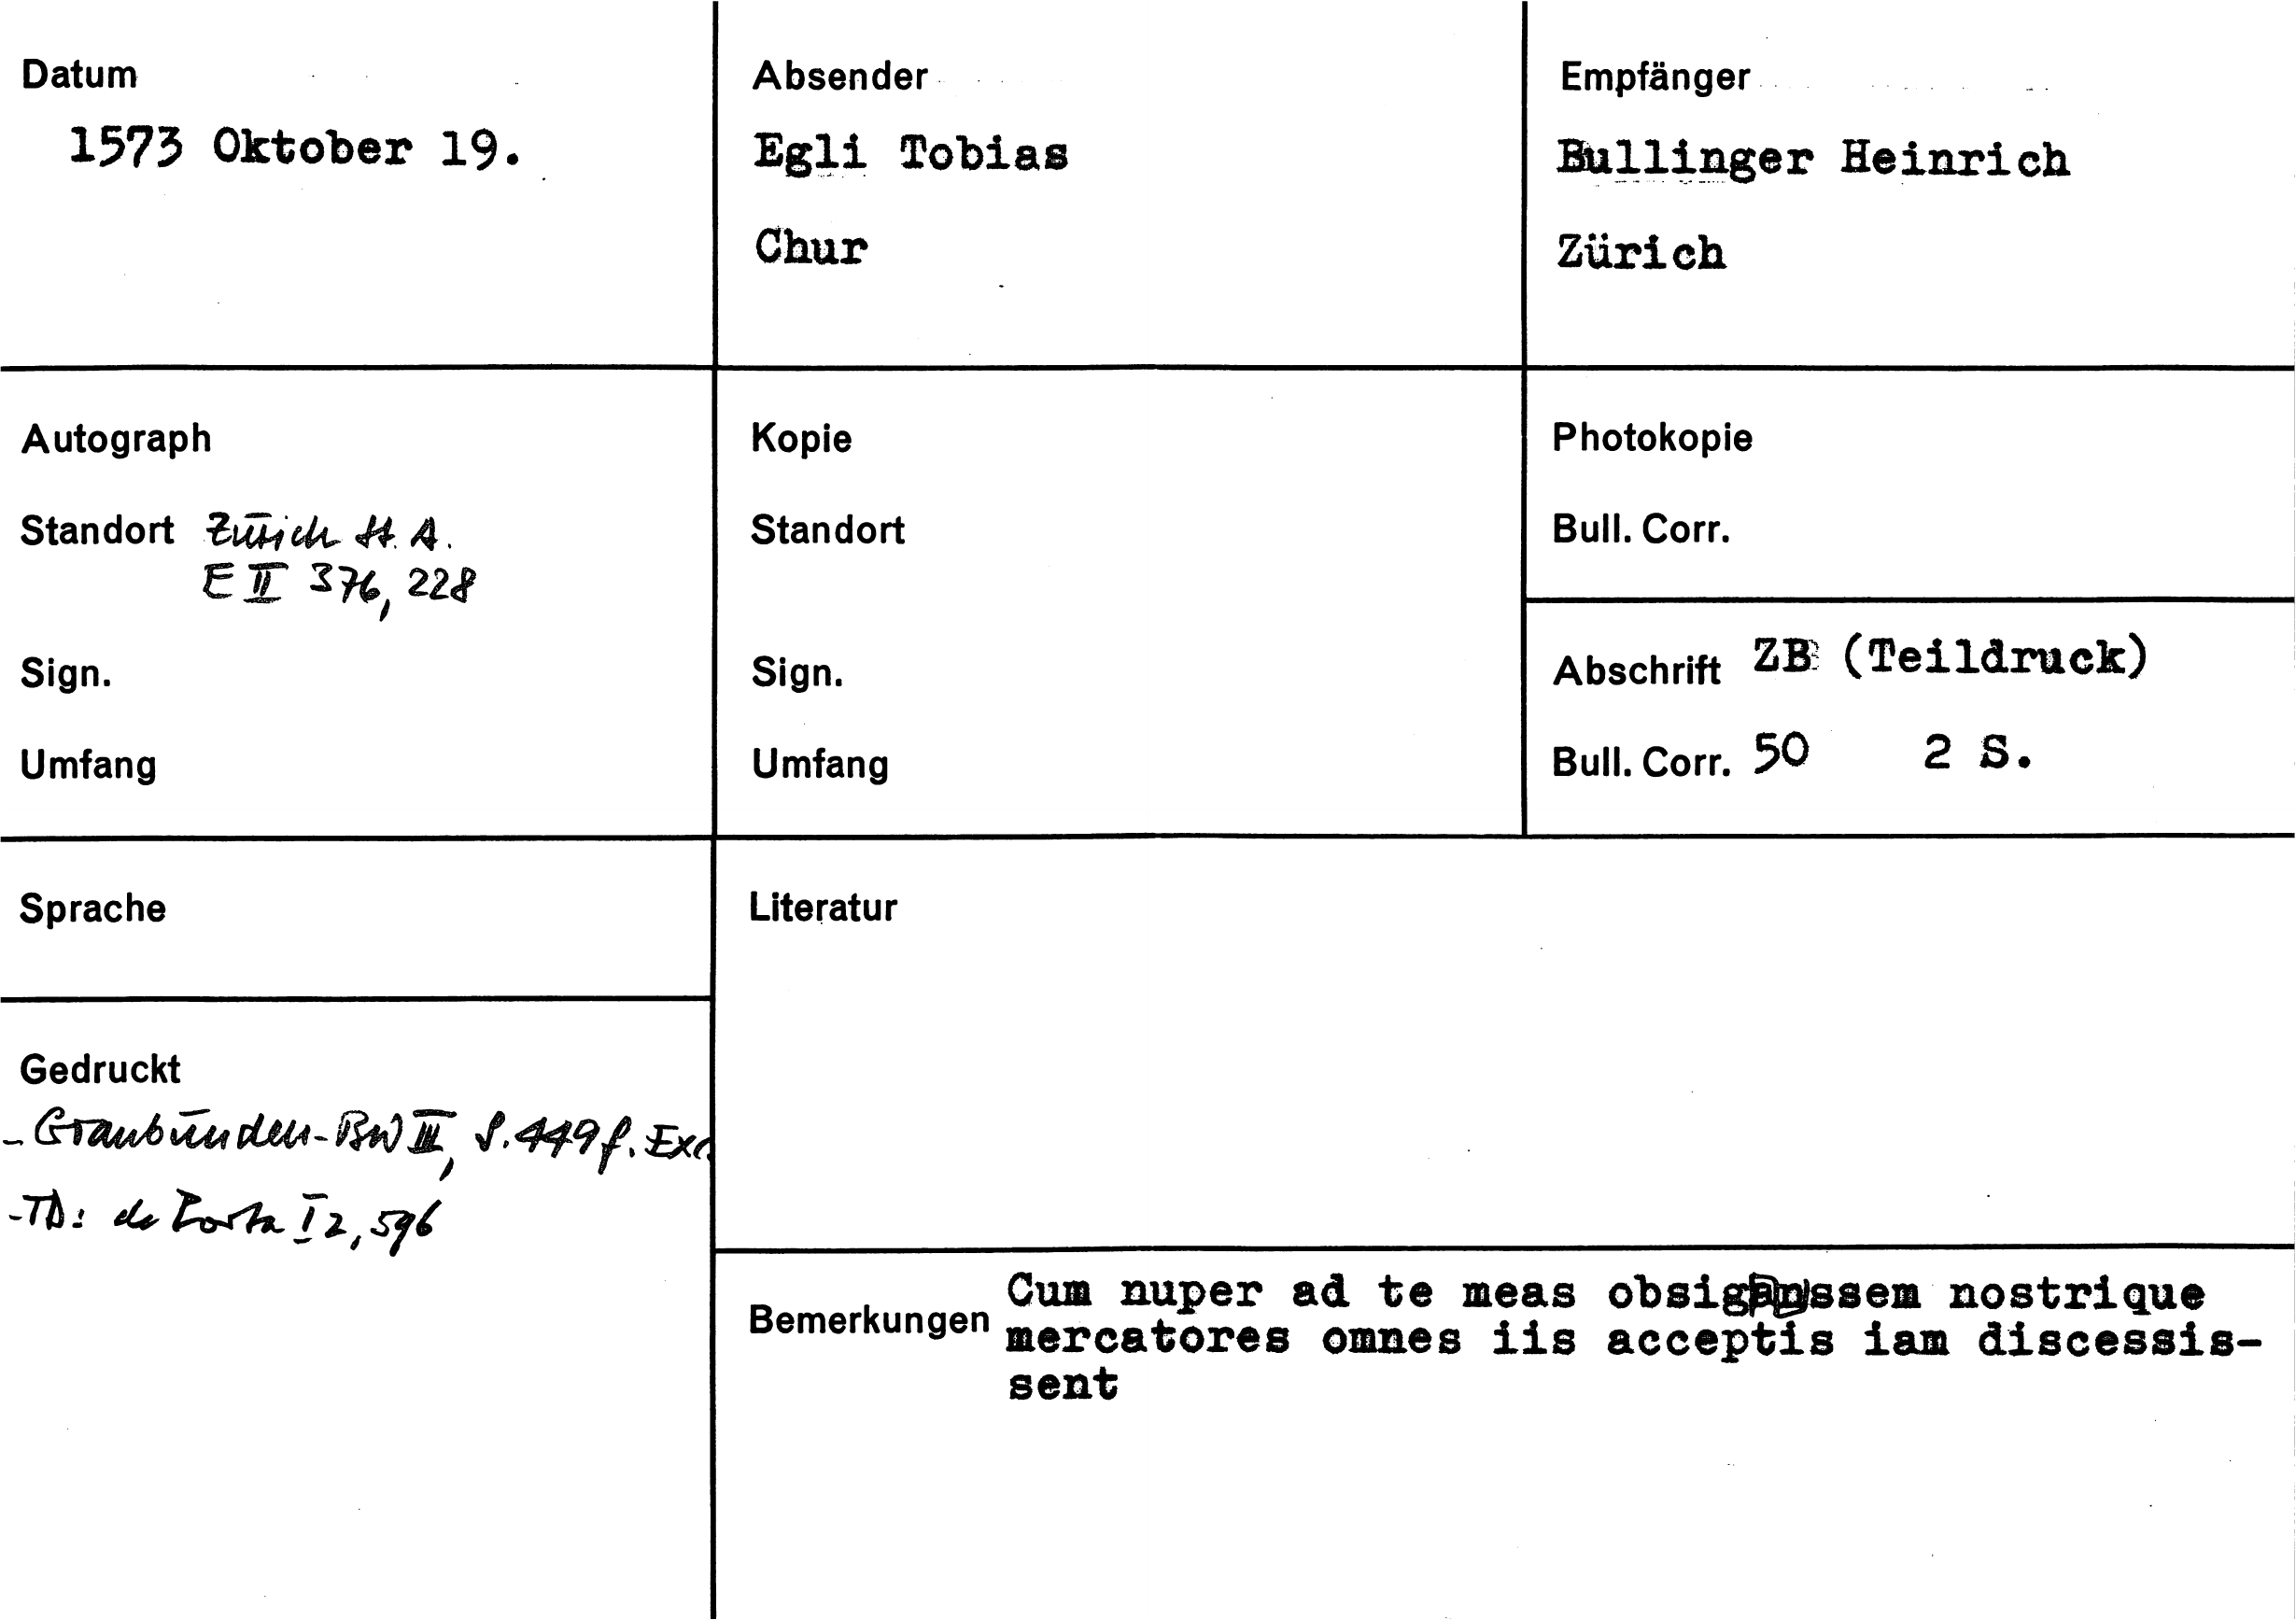 Datum
1573 Oktober 19.
Absender
Egli Tobias
Chur
Empfänger
Bullinger Heinrich
Zürich
Autograph
Standort Zürich St. A.
E II 376, 228
Sign.
Umfang
Kopie
Standort
Sign.
Umfang
Photokopie
Bull. Corr.
Abschrift ZB (Teildruck)
Bull. Corr. 50 2 S.
Sprache
Literatur
Gedruckt
- Graubünden-BW III, S. 449 f. Exc.
- TD: de Porta I 2, 596
Bemerkungen
Cum nuper ad te meas nostrique
mercatores omnes iis acceptis iam discessis-
sent